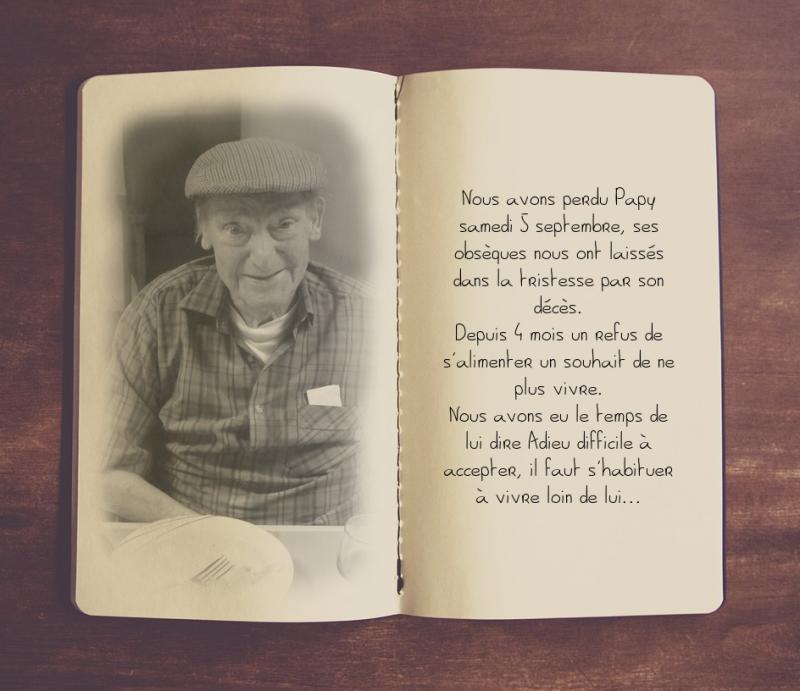 Nous avons perdu Papy
samedi 5 septembre, ses
obsèques nous ont laissés
dans la tristesse par son
décès.
Depuis 4 mois un refus de
s'alimenter un souhait de ne
plus vivre.
Nous avons eu le temps de
lui dire Adieu difficile à
accepter, il faut s'habituer
à vivre loin de lui...